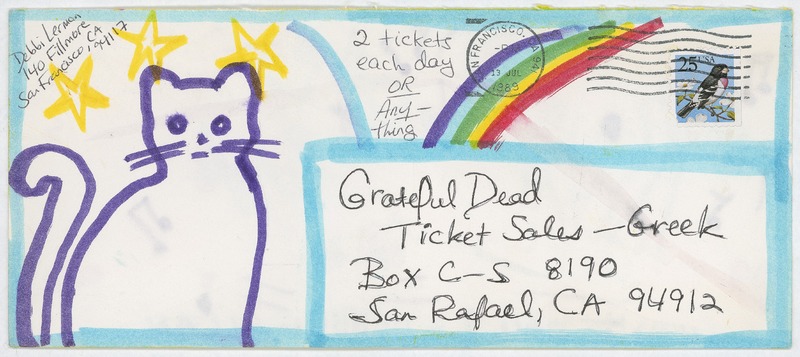 Debbi Lerman
740 Fillmore
San Francisco CA
94117
2 tickets
each day
OR
Any-
thing
SAN FRANCISCO, CA 941
13 JUL
1989
25 USA
Grateful Dead
Ticket Sales - Greek
Box C-S 8190
San Rafael, CA 94912